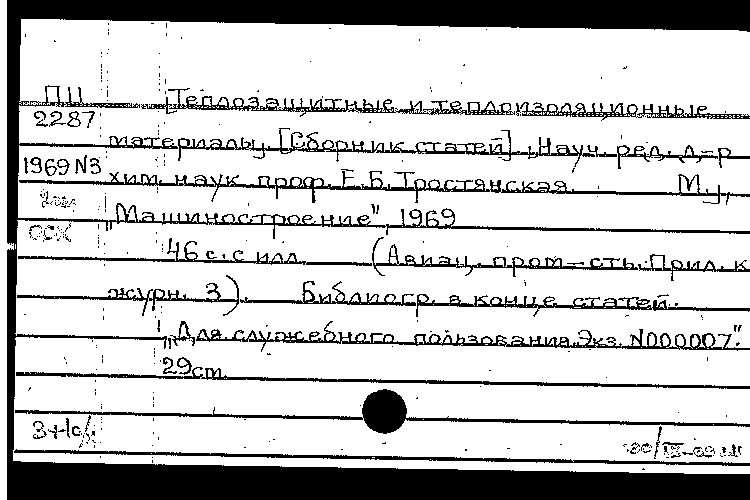 ПЦ [Теплозащитные и теплоизоляционные
2287
материалы. [Сборник статей]. Науч. ред. д-р
1969 N3 хим. наук проф. Е.Б. Тростянская. М.,
"Машиностроение", 1969
ОСК
46 с. с илл. (Авиац. пром-сть. Прил. к
журн. 3). Библиогр. в конце статей.
"Для служебного пользования. Экз. N000007".
29 см.